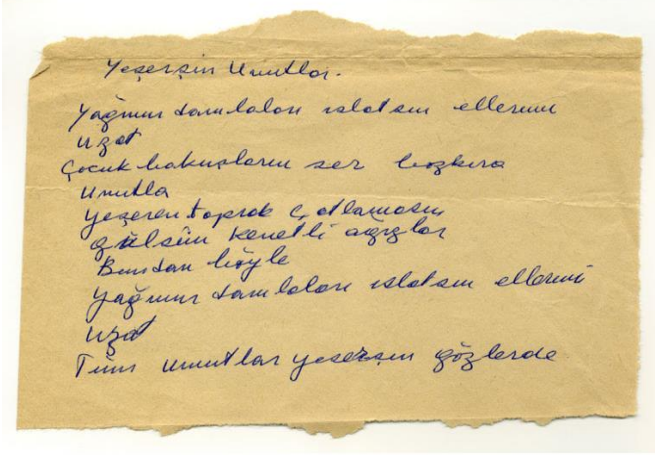 Yeşersin Umutlar.
Yağmur damlaları ıslatsın ellerini
uzat
Çocuk bakışların ser bozkıra
Umutla
yeşeren toprak çatlamasın
gülsün kenetli ağızlar
Bundan böyle
yağmur damlaları ıslatsın ellerini
uzat
Tüm umutlar yeşersin gözlerde